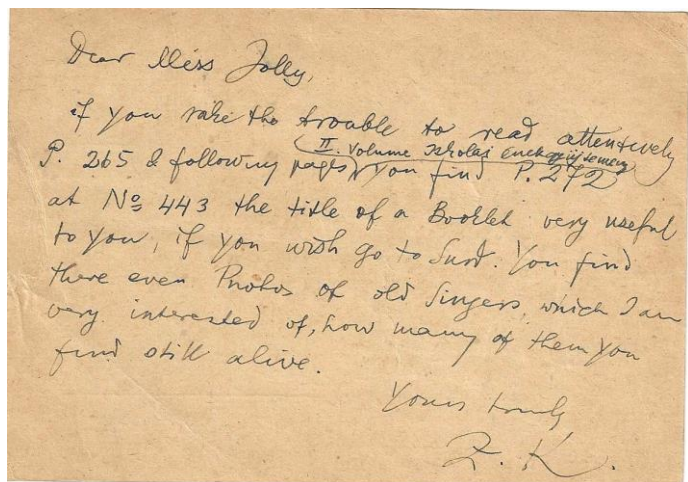 Dear Miss Jolly,
if you take the trouble to read attentively
(II. Volume Iskolai enekgyüjtemeny)
P. 265 & following pages, you find P. 272
at No 443 the title of a Booklet very useful
to you, if you wish go to Surd. You find
there even Photos of old Singers, which I am
very interested of, how many of them you
find still alive.
Yours truly,
Z. K.